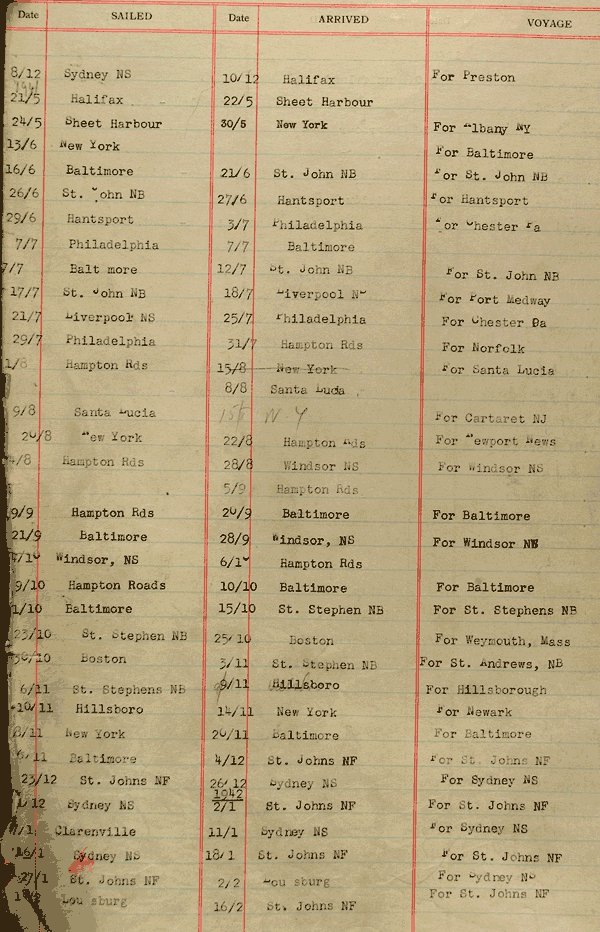 Date SAILED Date ARRIVED VOYAGE
8/12 Sydney NS 10/12 Halifax For Preston
21/5 Halifax 22/5 Sheet Harbour
24/5 Sheet Harbour 30/5 New York For Albany NY
13/6 New York For Baltimore
16/6 Baltimore 21/6 St. John NB For St. John NB
26/6 St. John NB 27/6 Hantsport For Hantsport
29/6 Hantsport 3/7 Philadelphia For Chester Pa
7/7 Philadelphia 7/7 Baltimore
7/7 Balt more 12/7 St. John NB For St. John NB
17/7 St. John NB 18/7 Liverpool NS For Port Medway
21/7 Liverpool NS 25/7 Philadelphia For Chester Pa
29/7 Philadelphia 31/7 Hampton Rds For Norfolk
1/8 Hampton Rds 15/8 New York For Santa Lucia
8/8 Santa Lucia
9/8 Santa Lucia 15/8 N.Y For Cartaret NJ
20/8 New York 22/8 Hampton Rds For Newport News
4/8 Hampton Rds 28/8 Windsor NS For Windsor NS
5/9 Hampton Rds
9/9 Hampton Rds 20/9 Baltimore For Baltimore
21/9 Baltimore 28/9 Windsor, NS For Windsor NS
/10 Windsor, NS 6/10 Hampton Rds
9/10 Hampton Roads 10/10 Baltimore For Baltimore
1/10 Baltimore 15/10 St. Stephen NB For St. Stephens NB
23/10 St. Stephen NB 25/10 Boston For Weymouth, Mass
30/10 Boston 3/11 St. Stephen NB For St. Andrews, NB
6/11 St. Stephens NB 9/11 Hillsboro For Hillsborough
10/11 Hillsboro 14/11 New York For Newark
8/11 New York 20/11 Baltimore For Baltimore
/11 Baltimore 4/12 St. Johns NF For St. Johns NF
23/12 St. Johns NF 26/12 Sydney NS For Sydney NS
1942
/12 Sydney NS 2/1 St. Johns NF For St. Johns NF
/1 Clarenville 11/1 Sydney NS For Sydney NS
16/1 Sydney NS 18/1 St. Johns NF For St. Johns NF
27/1 St. Johns NF 2/2 Lou sburg For Sydney NS
Lou sburg 16/2 St. Johns NF For St. Johns NF